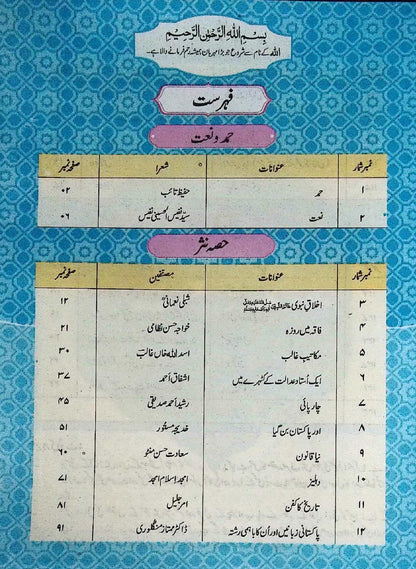 بِسْمِ اللهِ الرَّحْمٰنِ الرَّحِيْمِ
اللہ کے نام سے شروع جو بڑا مہربان نہایت رحم فرمانے والا ہے۔
فہرست
حمد و نعت
نمبر شمار عنوانات شعرا صفحہ نمبر
۱ حمد حفیظ تائب ۰۲
۲ نعت سیّد نفیس الحسینی نفیس ۰۶
حصہ نثر
نمبر شمار عنوانات مصنفین صفحہ نمبر
۳ اخلاقِ نبوی شبلی نعمانی ۱۲
۴ فاقہ میں روزہ خواجہ حسن نظامی ۲۱
۵ مکاتیبِ غالب اسد اللہ خاں غالب ۳۰
۶ ایک اُستاد عدالت کے کٹہرے میں اشفاق احمد ۳۷
۷ چارپائی رشید احمد صدیقی ۴۵
۸ اور پاکستان بن گیا خدیجہ مستور ۵۱
۹ نیا قانون سعادت حسن منٹو ۶۰
۱۰ دہلیز امجد اسلام امجد ۷۱
۱۱ تاریخ کا کفن امر جلیل ۸۱
۱۲ پاکستانی زبانیں اور اُن کا باہمی رشتہ ڈاکٹر ممتاز منگلوری ۹۱